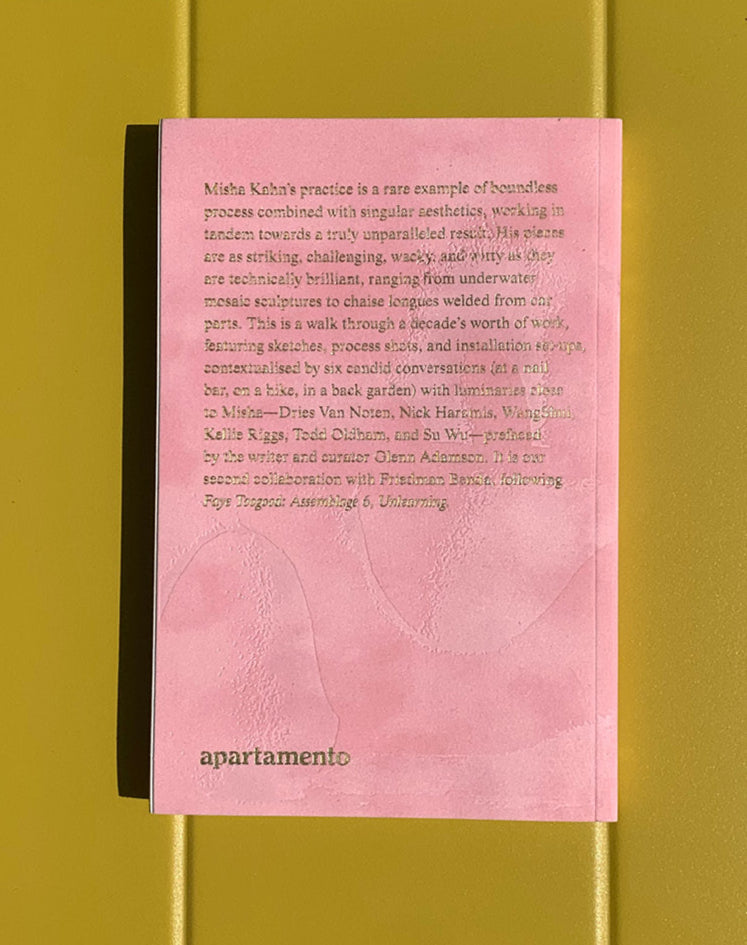 Misha Kahn's practice is a rare example of boundless
process combined with singular aesthetics, working in
tandem towards a truly unparalleled result. His pieces
are as striking, challenging, wacky, and witty as they
are technically brilliant, ranging from underwater
mosaic sculptures to chaise longues welded from car
parts. This is a walk through a decade's worth of work,
featuring sketches, process shots, and installation set-ups,
contextualised by six candid conversations (at a nail
bar, on a hike, in a back garden) with luminaries close
to Misha—Dries Van Noten, Nick Haramis,
Kellie Riggs, Todd Oldham, and Su Wu—prefaced
by the writer and curator Glenn Adamson. It is our
second collaboration with Friedman Benda, following
Faye Toogood: Assemblage 6, Unlearning.
apartamento